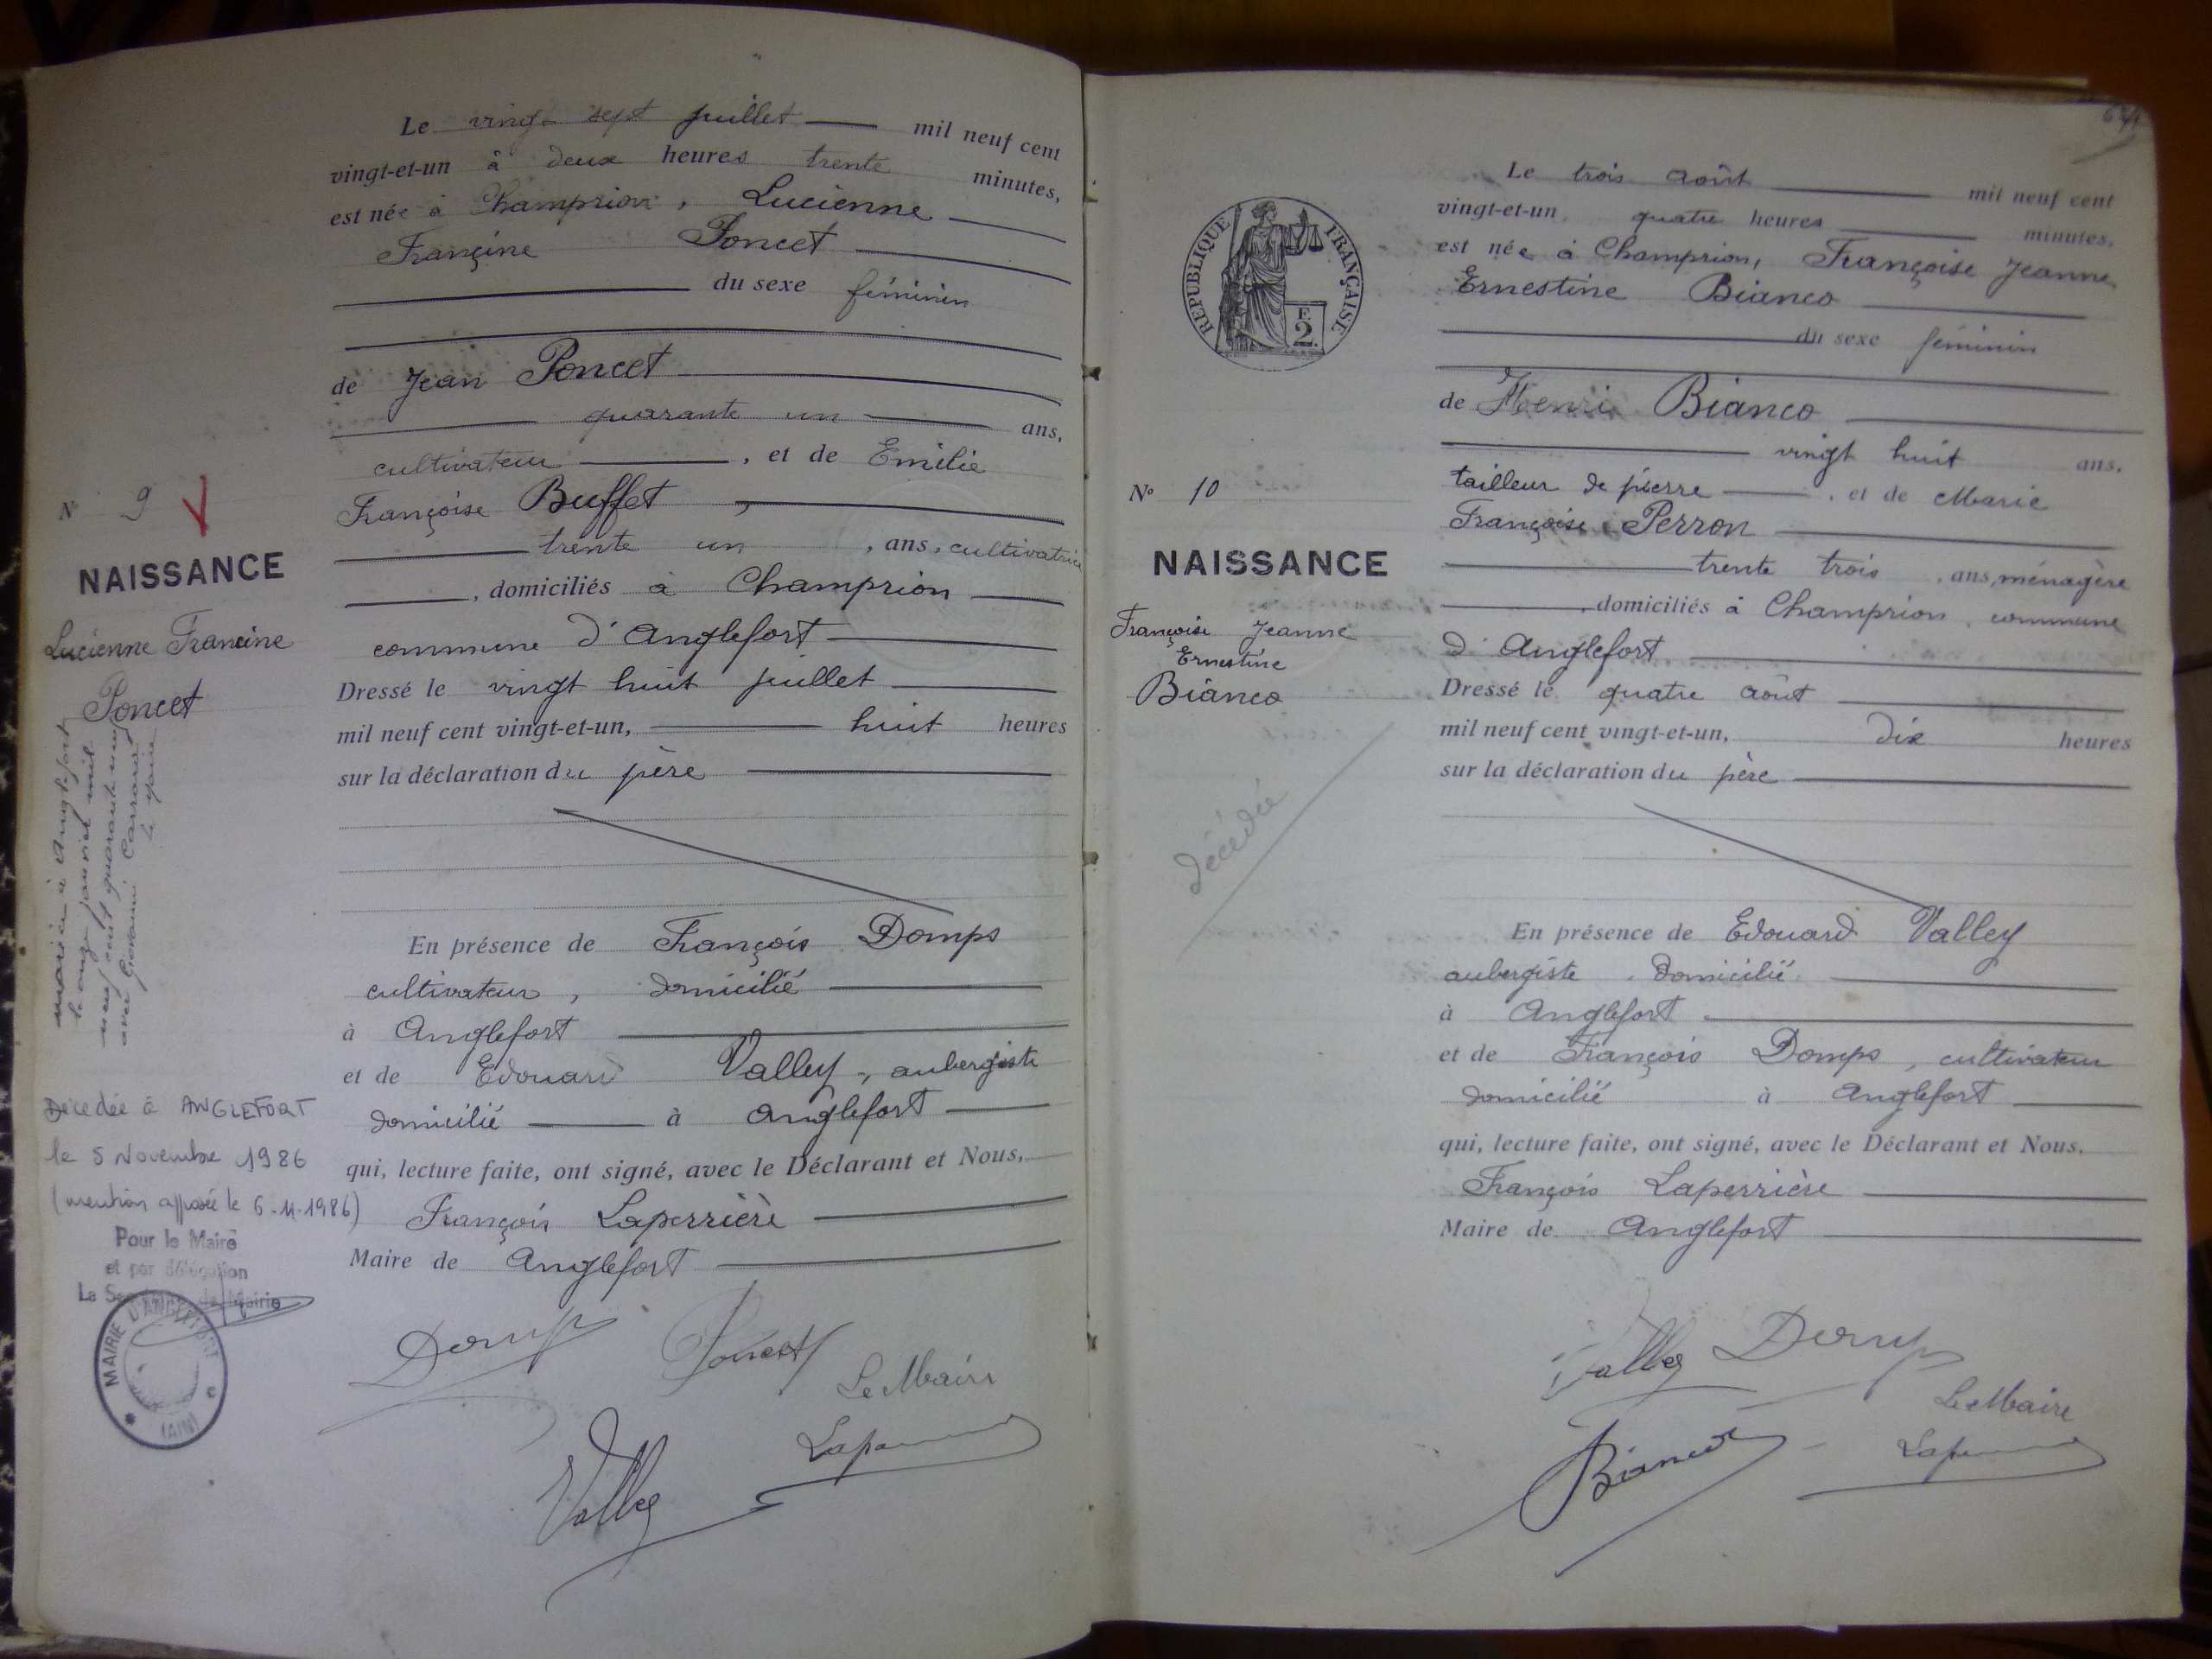 Le vingt sept juillet mil neuf cent
vingt-et-un à deux heures trente minutes,
est née à Champrion, Lucienne
Françine Poncet
du sexe féminin
de Jean Poncet
quarante un ans,
cultivateur, et de Emilie
Françoise Buffet,
trente un, ans, cultivatrice
, domiciliés à Champrion
commune d'Anglefort
Dressé le vingt huit juillet
mil neuf cent vingt-et-un, huit heures
sur la déclaration du père
En présence de François Domps
cultivateur, domicilié
à Anglefort
et de Edouard Valley, aubergiste
domicilié à Anglefort
qui, lecture faite, ont signé, avec le Déclarant et Nous,
François Laperrière
Maire de Anglefort
Domps Poncet
Le Maire
Valley
N° 9
NAISSANCE
Lucienne Francine
Poncet
mariée à Anglefort
le onze janvier mil
neuf cent quarante un
avec Giovanni
Décedée à ANGLEFORT
le 5 Novembre 1986
(mention apposée le 6-11-1986)
Pour le Maire
et par délégation
Le Secrétaire de Mairie
MAIRIE D'ANGLEFORT
(AIN)
REPUBLIQUE FRANÇAISE
F.
2.
N° 10
NAISSANCE
Françoise Jeanne
Ernestine
Bianco
décédée
Le trois août mil neuf cent
vingt-et-un, quatre heures minutes,
est née à Champrion, Françoise Jeanne
Ernestine Bianco
du sexe féminin
de Henri Bianco
vingt huit ans,
tailleur de pierre, et de Marie
Françoise Perron
trente trois, ans, ménagère
, domiciliés à Champrion, commune
d'Anglefort
Dressé le quatre août
mil neuf cent vingt-et-un, dix heures
sur la déclaration du père
En présence de Edouard Valley
aubergiste, domicilié
à Anglefort
et de François Domps, cultivateur
domicilié à Anglefort
qui, lecture faite, ont signé, avec le Déclarant et Nous,
François Laperrière
Maire de Anglefort
Valley Domps
Le Maire
Bianco